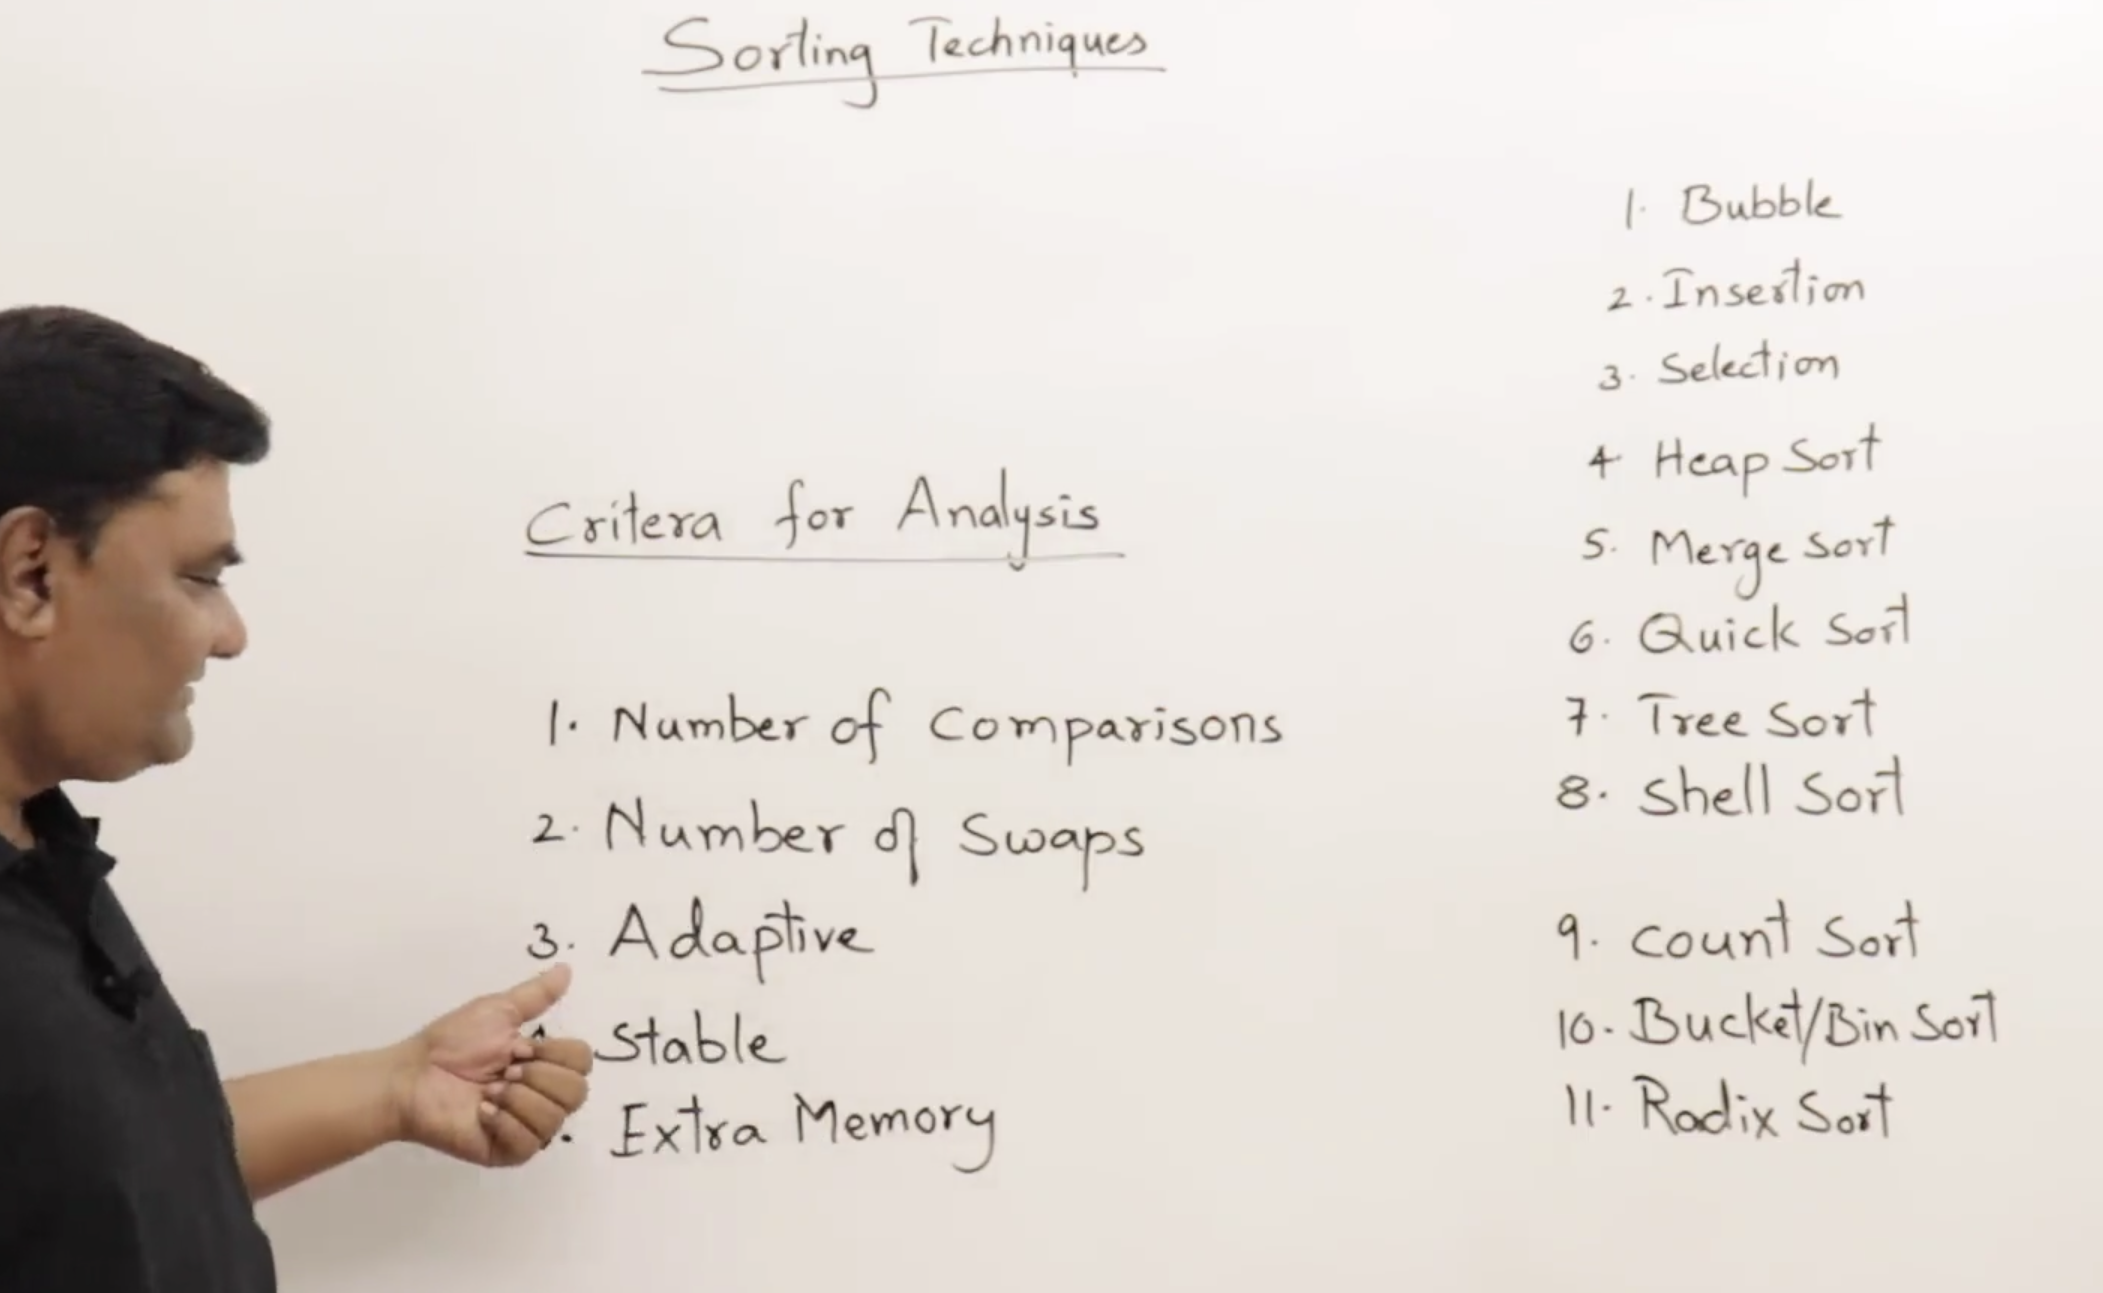 Sorting Techniques
Critera for Analysis
1. Number of Comparisons
2. Number of Swaps
3. Adaptive
Stable
Extra Memory
1. Bubble
2. Insertion
3. Selection
4 Heap Sort
5. Merge Sort
6. Quick Sort
7. Tree Sort
8. Shell Sort
9. Count Sort
10. Bucket/Bin Sort
11. Radix Sort